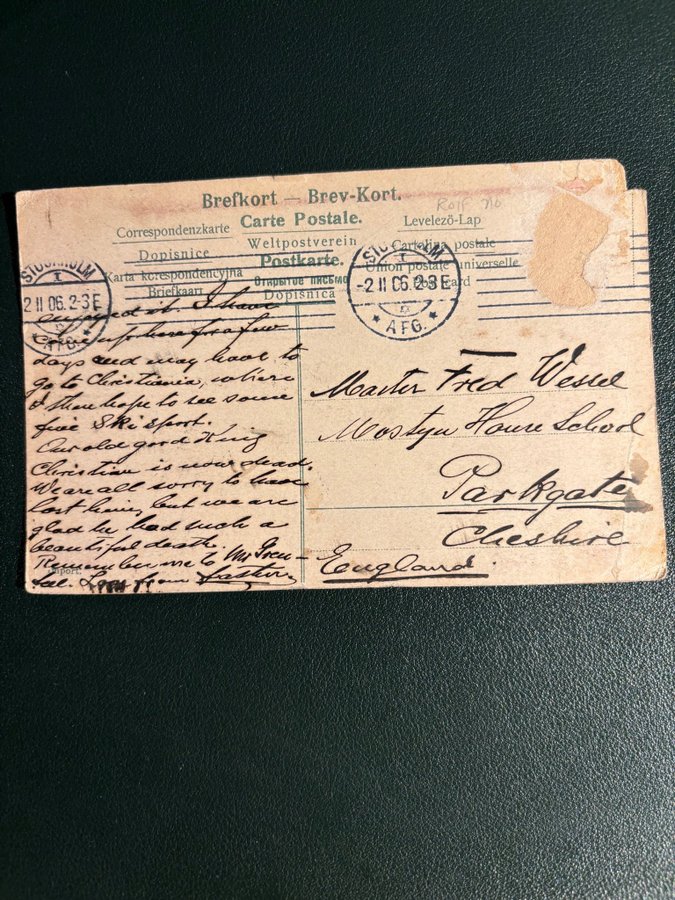 Brefkort — Brev-Kort.
Correspondenzkarte Carte Postale. Levelező-Lap
Dopisnice Weltpostverein Cartolina postale
Karta korespondencyjna Postkarte. Union postale universelle
Briefkaart Открытое письмо Card
Dopisnica
STOCKHOLM
1
2 11 06. 2-3 E
AFG.
STOCKHOLM
1
-2 11 06. 2-3 E
* AFG. *
it. I have
come up here for a few
days and may have to
go to Christiania, where
I then hope to see some
fine Ski sport.
Our old good King
Christian is now dead.
We are all sorry to have
lost him, but we are
glad he had such a
beautiful death.
Remember me to Mr Gren-
fel. Love from
Import.
Master Fred Wessel
Mostyn House School
Parkgate
Cheshire
England.